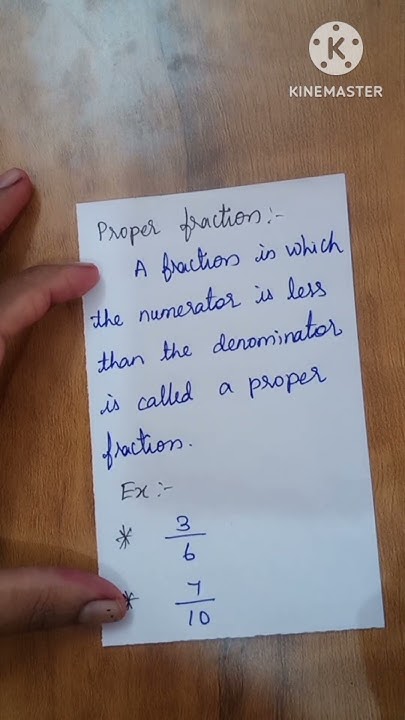 K
KINEMASTER
Proper fraction:-
A fraction in which
the numerator is less
than the denominator
is called a proper
fraction.
Ex:-
* 3/6
* 7/10